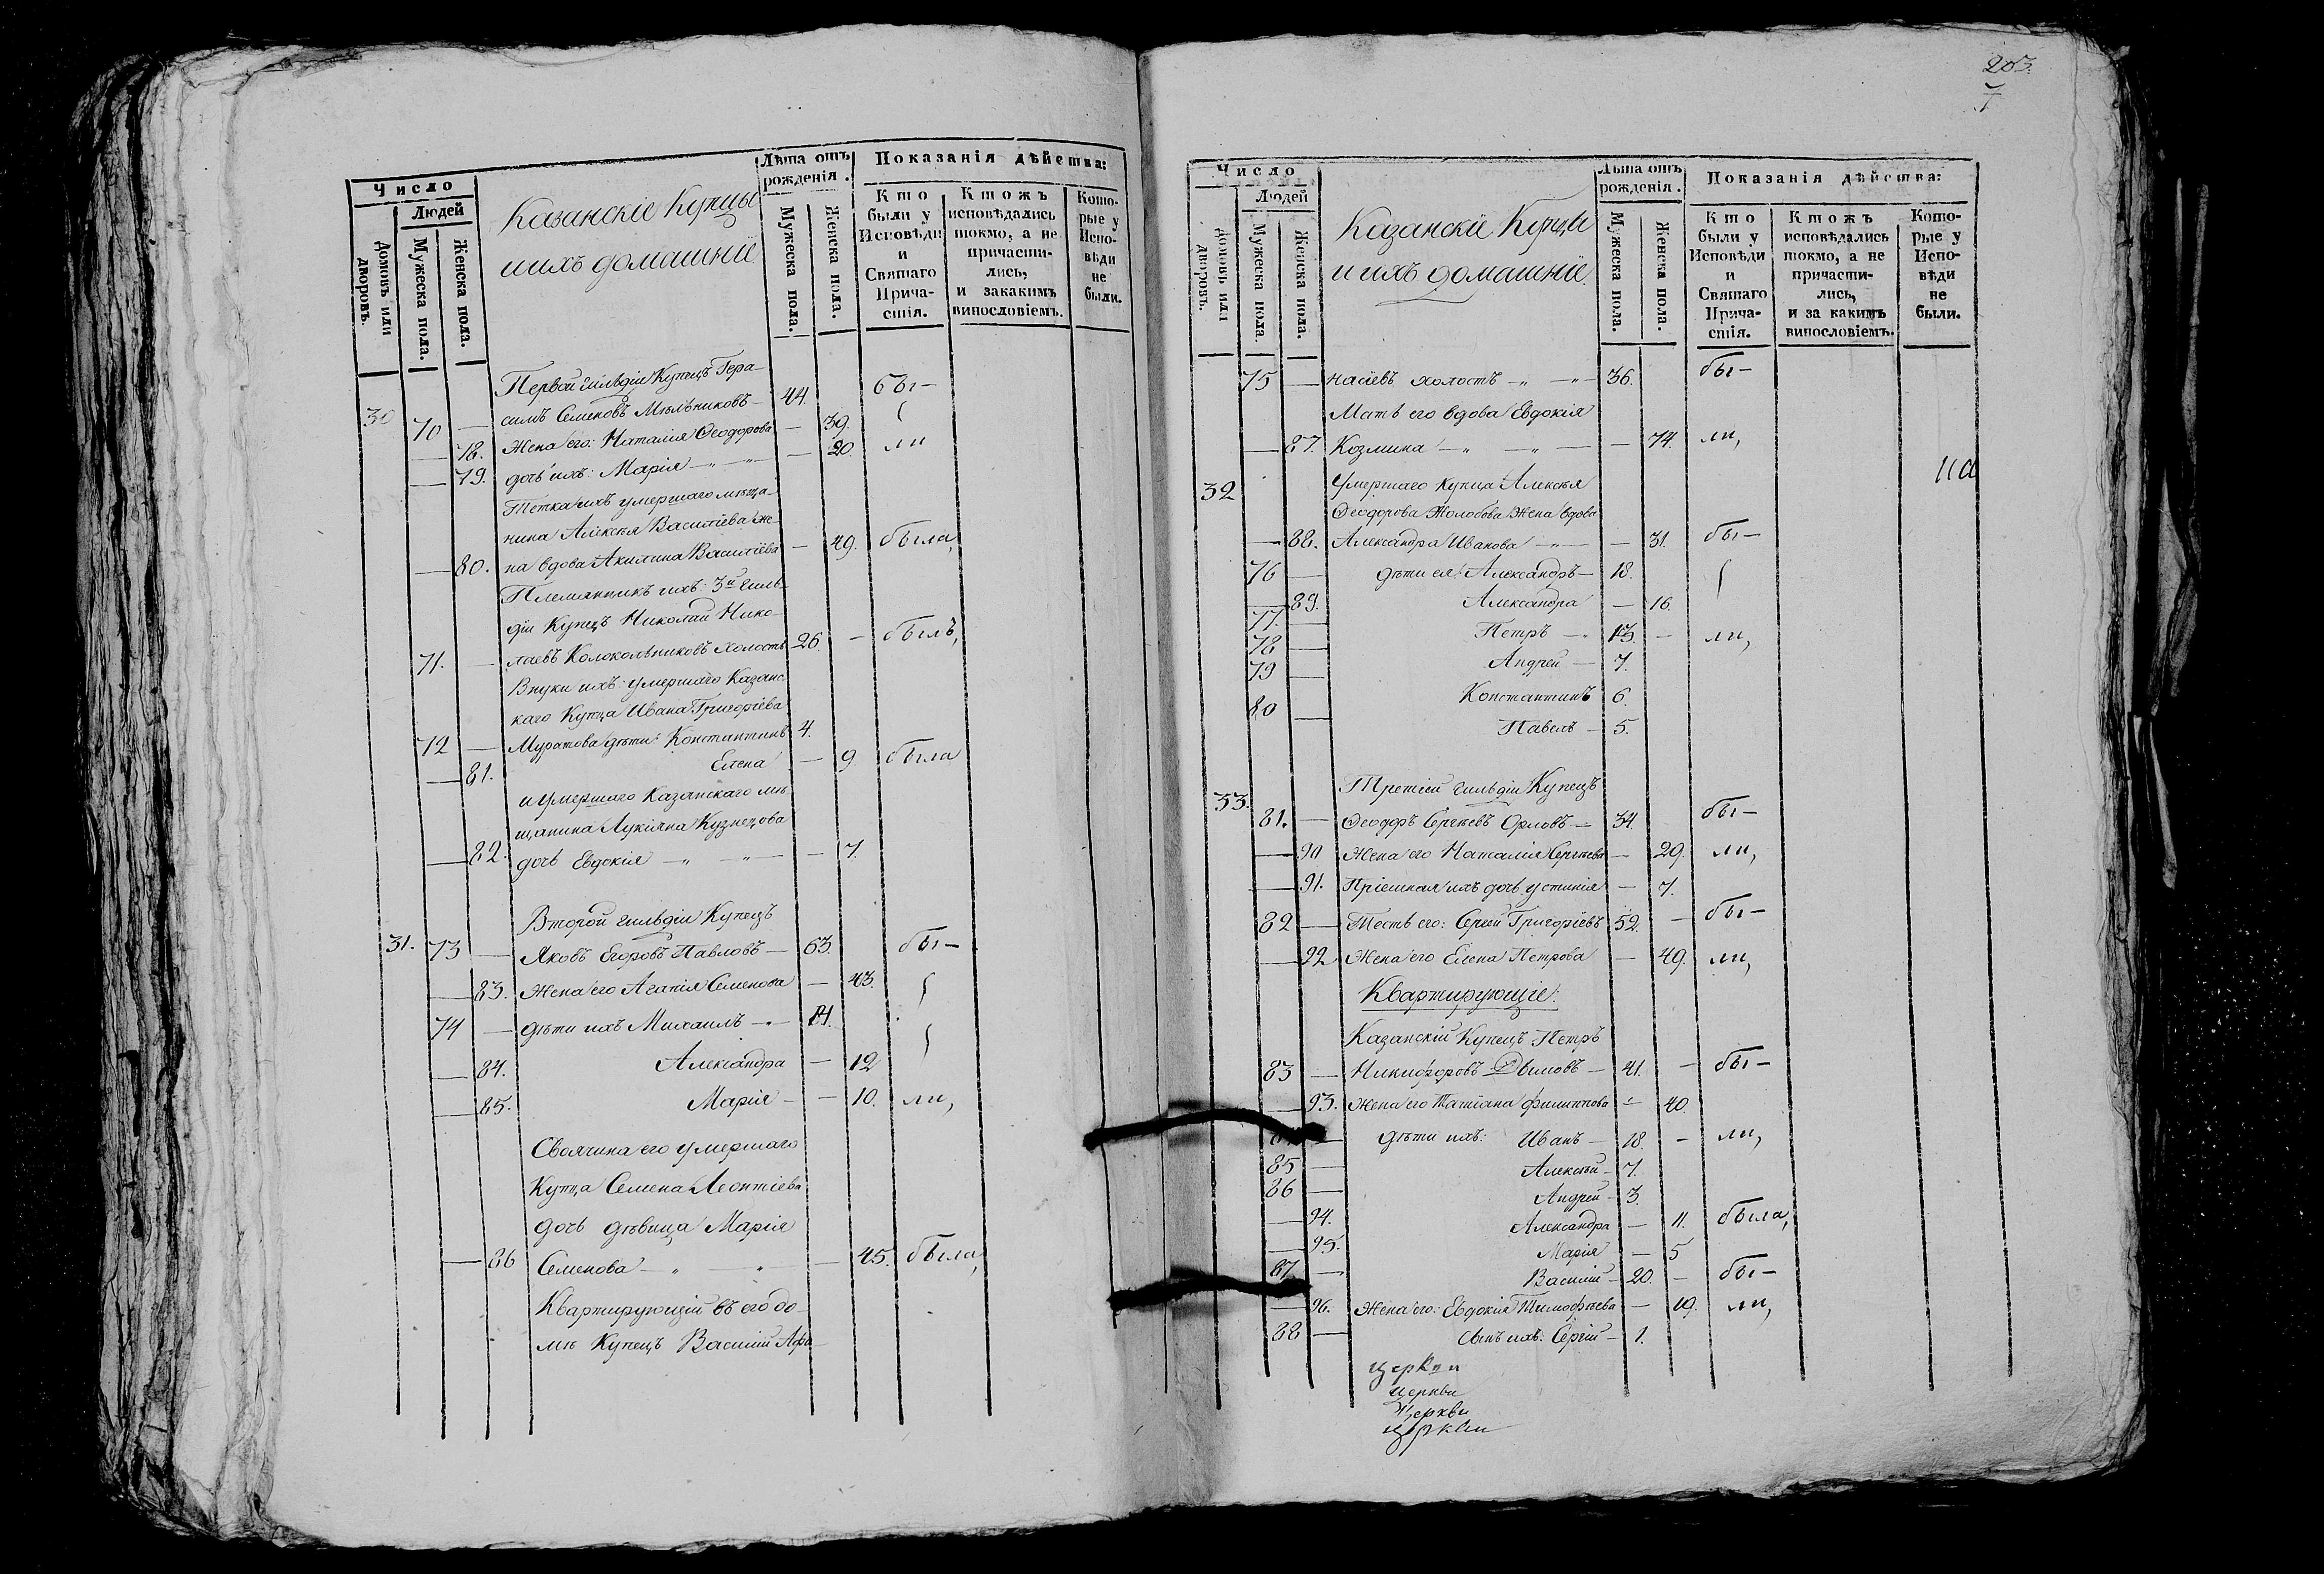 Число
Людей
Домовъ или дворовъ.
Мужеска пола.
Женска пола.
Казанскіе Купцы
и ихъ домашніе
Лѣта отъ рожденія.
Мужеска пола.
Женска пола.
Показанія дѣйства:
Кто были у Исповѣди и Святаго Причастія.
Ктожъ исповѣдались токмо, а не причастились, и закакимъ винословіемъ.
Которые у Исповѣди не были.
Первой гильдіи Купецъ Гера-
30 70 — симъ Семеновъ Мельниковъ — 44. бы-
— 78. Жена его: Наталія Ѳеодорова — 39.
— 79. дочь ихъ: Марія — „ — „ — — 20. ли
Тетка ихъ умершаго мѣща-
нина Алексѣя Василіева же-
— 80. на вдова Акилина Василіева — 49. была,
Племянникъ ихъ: 3й гиль-
діи Купецъ Николай Нико-
71. — лаевъ Колокольниковъ холостъ 26. — былъ,
Внуки ихъ: умершаго Казанс-
каго Купца Ивана Григоріева
72 — Муратова дѣти: Константинъ 4.
— 81. Елена — 9 была
и умершаго Казанскаго мѣ-
щанина Лукіяна Кузнецова
— 82. дочь Евдокія — „ — „ — — 7.
Второй гильдіи Купецъ
31. 73 — Яковъ Егоровъ Павловъ — 63. бы-
— 83. Жена его Агапія Семенова — 43.
74 — дѣти ихъ Михаилъ — 14.
— 84. Александра — 12
— 85. Марія — — 10. ли,
Своячина его умершаго
Купца Семена Леонтіева
дочь дѣвица Марія
— 86 Семенова — „ — „ — — 45. была,
Квартирующій въ его до-
мѣ Купецъ Василій Афа-
203.
7
Число
Людей
Домовъ или дворовъ.
Мужеска пола.
Женска пола.
Казанскіе Купцы
и ихъ домашніе.
Лѣта отъ рожденія.
Мужеска пола.
Женска пола.
Показанія дѣйства:
Кто были у Исповѣди и Святаго Причастія.
Ктожъ исповѣдались токмо, а не причастились, и за какимъ винословіемъ.
Которые у Исповѣди не были.
75 — насіевъ холостъ — „ — „ — 36. бы-
Мать его вдова Евдокія
— 87. Козмина — „ — „ — — 74. ли,
32 Умершаго Купца Алексѣя
Ѳеодорова Жолобова Жена вдова
— 88. Александра Иванова — „ — — 31. бы-
76 — дѣти ея: Александръ — 18.
— 89. Александра — 16.
77. — Петръ — 13. — ли,
78 — Андрей — 7.
79 — Константинъ 6.
80 — Павелъ — 5.
Третіей гильдіи Купецъ
33. 81. — Ѳеодоръ Сергѣевъ Орловъ — 34. бы-
— 90 Жена его Наталія Сергѣева — 29. ли,
— 91. Пріемная ихъ дочь Устинія — 7.
82 — Тесть его: Сергей Григоріевъ 52. — бы-
— 92 Жена его Елена Петрова — 49. ли,
Квартирующіе:
Казанскій Купецъ Петръ
83 — Никифоровъ Дымовъ — 41. — бы-
— 93. Жена его Татіана Филиппова — 40.
— дѣти ихъ: Иванъ — 18. — ли,
85 — Алексѣй — 7.
86 — Андрей — 3.
— 94. Александра — 11. была,
— 95. Марія — 5
87 — Василій — 20. — бы-
— 96. Жена его: Евдокія Тимофѣева — 19. ли,
88 — сынъ ихъ: Сергій — 1.
церкви
церкви
Церкви
церкви